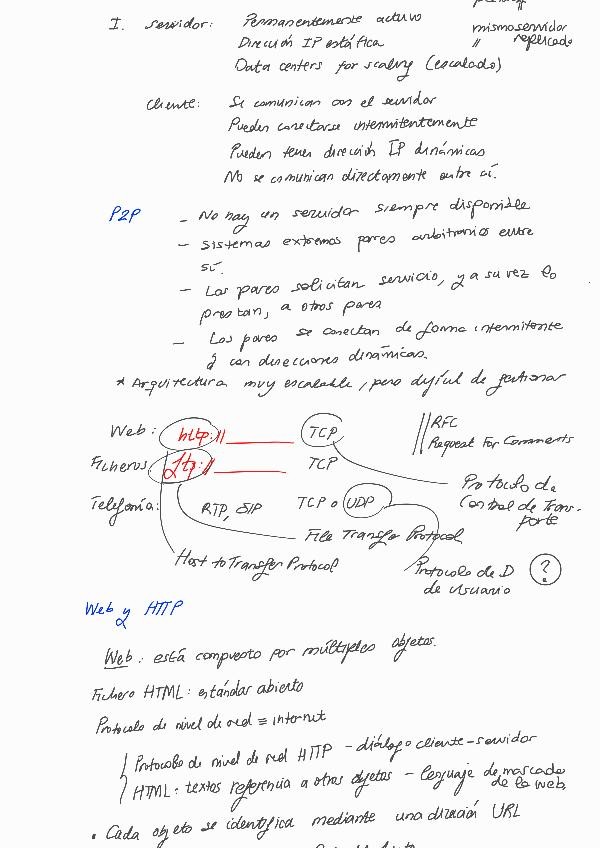 I. servidor: Permanentemente activo
mismo servidor
Dirección IP estática
// replicado
Data centers for scalny (escalado)
cliente: Se comunican con el servidor
Pueden conectarse intermitentemente
Pueden tener dirección IP dinámicas
No se comunican directamente entre sí.
P2P - No hay un servidor siempre disponible
- Sistemas extremos pares arbitrarios entre
sí.
- Los pares solicitan servicio, y a su vez lo
prestan, a otros pares
- Los pares se conectan de forma intermitente
y con direcciones dinámicas.
* Arquitectura muy escalable, pero difícil de gestionar
Web: http:// TCP // RFC
Request For Comments
Ficheros: ftp:// TCP
Protocolo de
Control de Trans-
porte
Telefonía: RTP, SIP TCP o UDP
File Transfer Protocol
Host to Transfer Protocol
Protocolo de D ?
de usuario
Web y HTTP
Web: está compuesto por múltiples objetos.
Fichero HTML: estándar abierto
Protocolo de nivel de red ≡ internet
Protocolo de nivel de red HTTP - diálogo cliente-servidor
HTML: textos referencia a otros objetos - lenguaje de marcado
de la web
• Cada objeto se identifica mediante una dirección URL